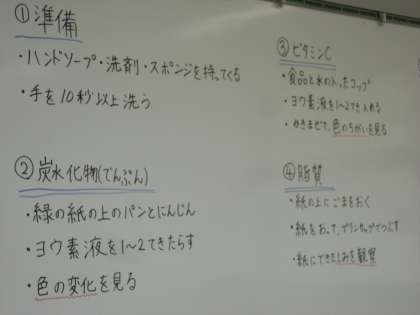 ①準備
・ハンドソープ・洗剤・スポンジを持ってくる
・手を10秒以上洗う
②炭水化物(でんぷん)
・緑の紙の上のパンとにんじん
・ヨウ素液を1~2てきたらす
・色の変化を見る
③ビタミンC
・食品と水の入ったコップ
・ヨウ素液を1~2てき入れる
・かきまぜて、色のちがいを見る
④脂質
・紙の上にごまをおく
・紙をおって、プリンカップでつぶす
・紙にできたしみを観察